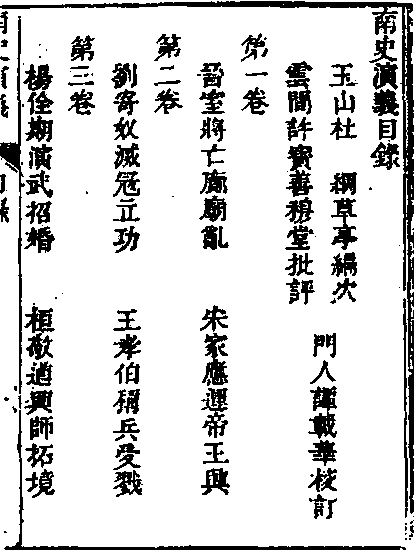 南史演義目錄
玉山杜 綱草亭編次
雲間許寶善穆堂批評
門人譚載華校訂
第一卷
晉室將亡廊廟亂 宋家應運帝王興
第二卷
劉寄奴滅寇立功 王孝伯稱兵受戮
第三卷
楊佺期演武招婚 桓敬道興師拓境
南史演義 目錄